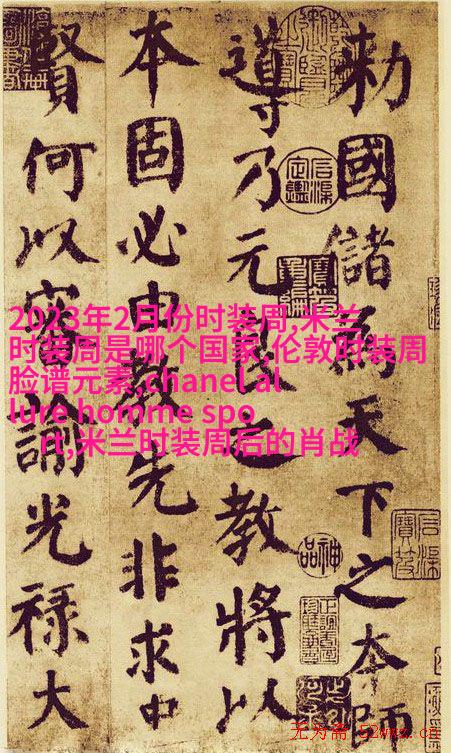 勅國儲為天下之本師
導乃元良之教將以
本固必由教先非求中
賢何以審諭光祿大
2023年2月份时装周,米兰
时装周是哪个国家,伦敦时装周
脸谱元素,chanel al
lure homme spo
rt,米兰时装周后的肖战
神品
无为斋 52wwz.cn